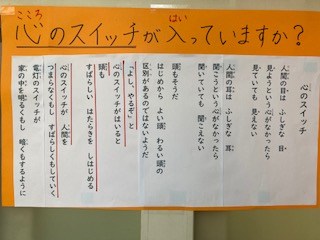 こころ
はい
心のスイッチが入っていますか？
心のスイッチ
人間の目は ふしぎな 目
見ようという心がなかったら
見ていても 見えない
人間の耳は ふしぎな 耳
聞こうという心がなかったら
聞いていても 聞こえない
頭もそうだ
はじめから よい頭 わるい頭の
区別があるのではないようだ
「よし、やるぞ」と
心のスイッチがはいると
頭も
すばらしい はたらきを しはじめる
心のスイッチが 人間を
つまらなくもし すばらしくもしていく
電灯のスイッチが
家の中を明るくもし 暗くもするように